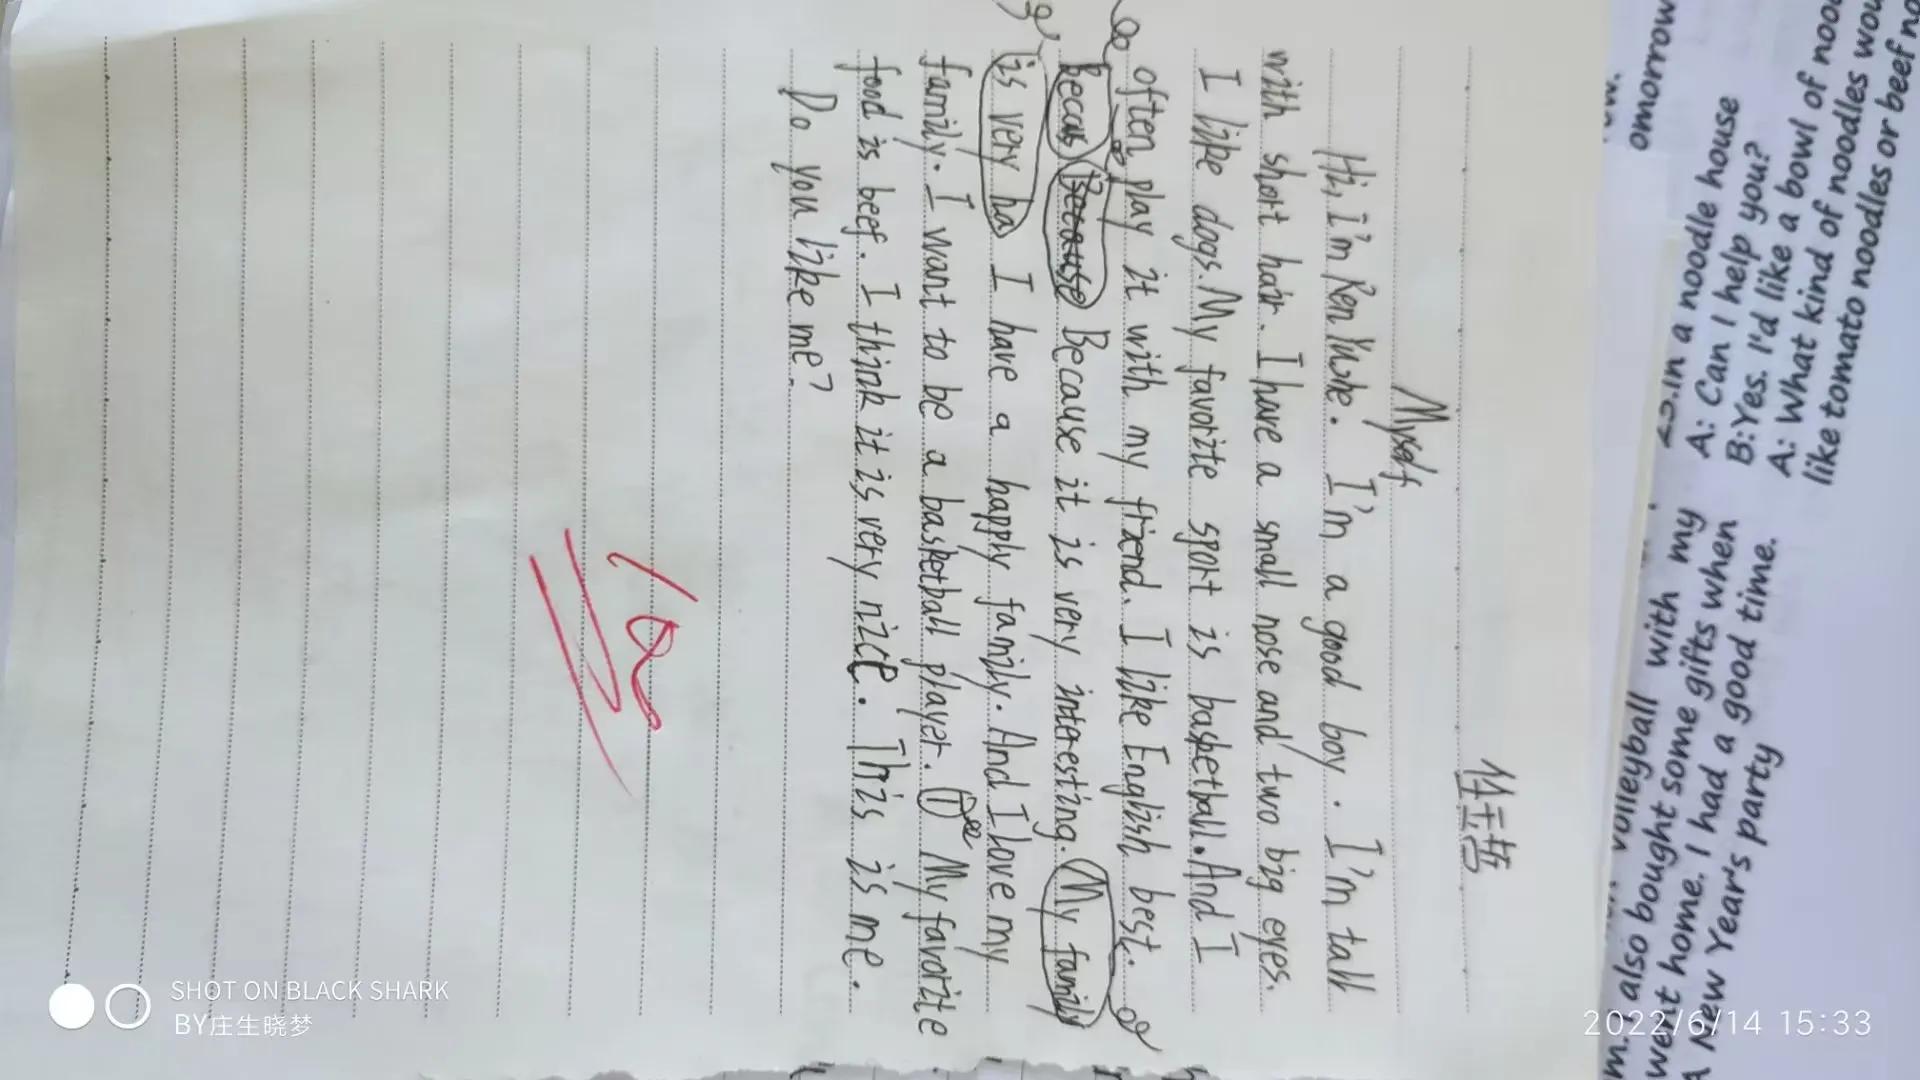 任玉哲
Myself
Hi, I'm Ren Yuzhe. I'm a good boy. I'm tall
with short hair. I have a small nose and two big eyes.
I like dogs. My favorite sport is basketball. And I
often play it with my friend. I like English best.
Becaus Because Because it is very interesting. My family
is very ha I have a happy family. And I love my
family. I want to be a basketball player. I My favorite
food is beef. I think it is very nice. This is me.
Do you like me?
omorrow
25.In a noodle house
A: Can I help you?
B:Yes. I'd like a bowl of
A: What kind of noodles
like tomato noodles or beef
volleyball with my
also bought some gifts when
went home. I had a good time.
A New Year's party
SHOT ON BLACK SHARK
BY庄生晓梦
2022/6/14 15:33